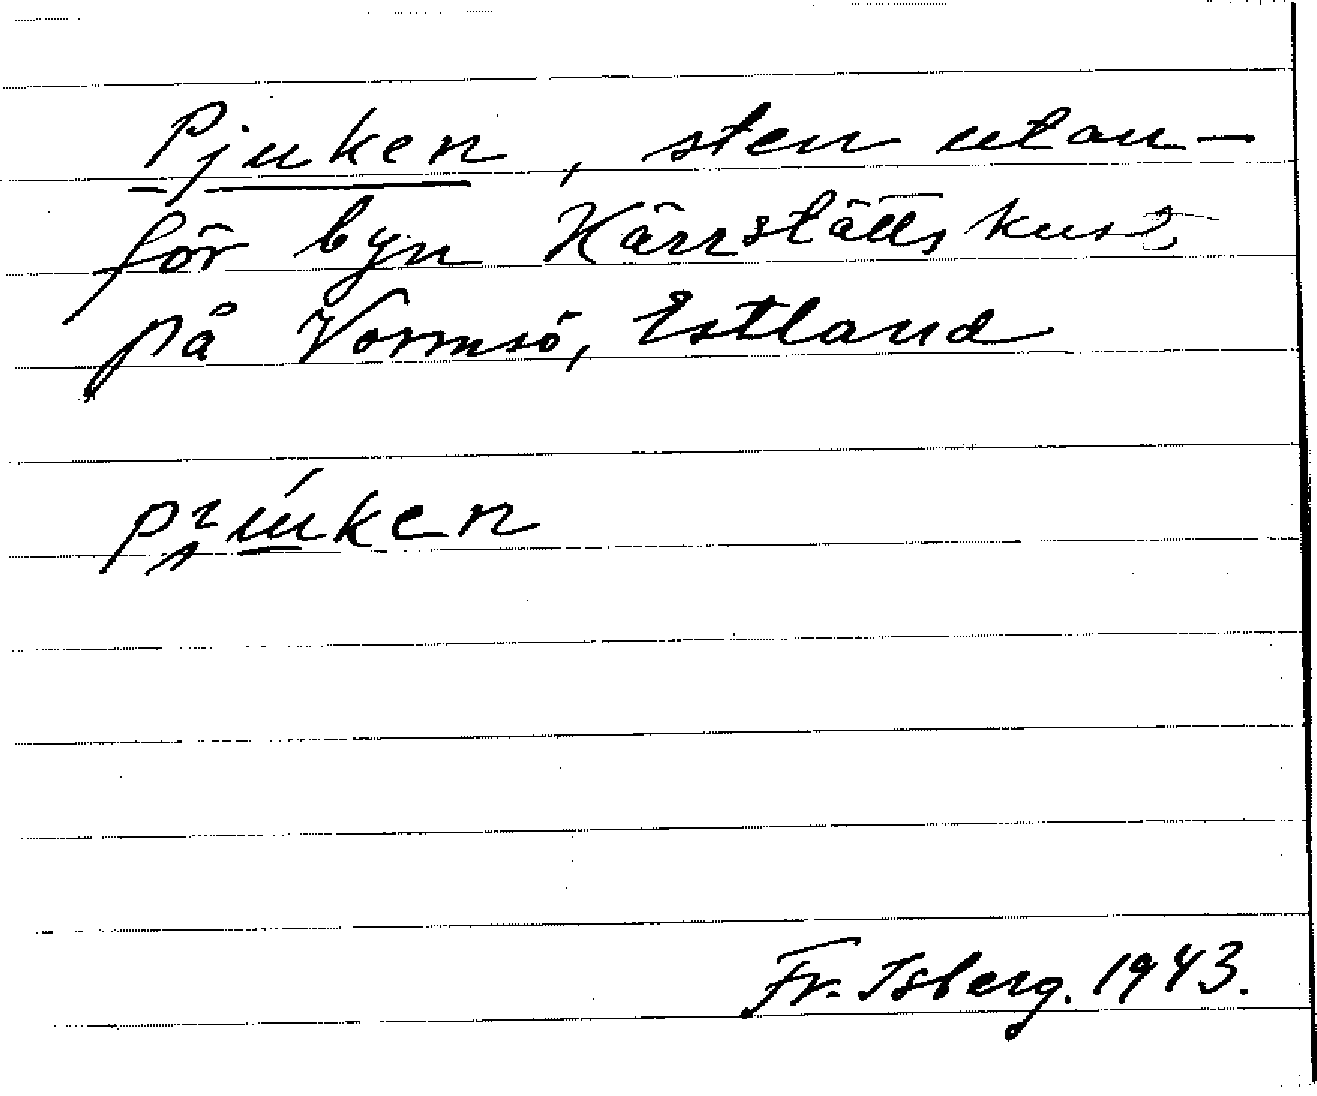 Pjuken, sten utan-
för byn Kärrstätts kust,
på Vormsö, Estland
Fr. Isberg. 1943.